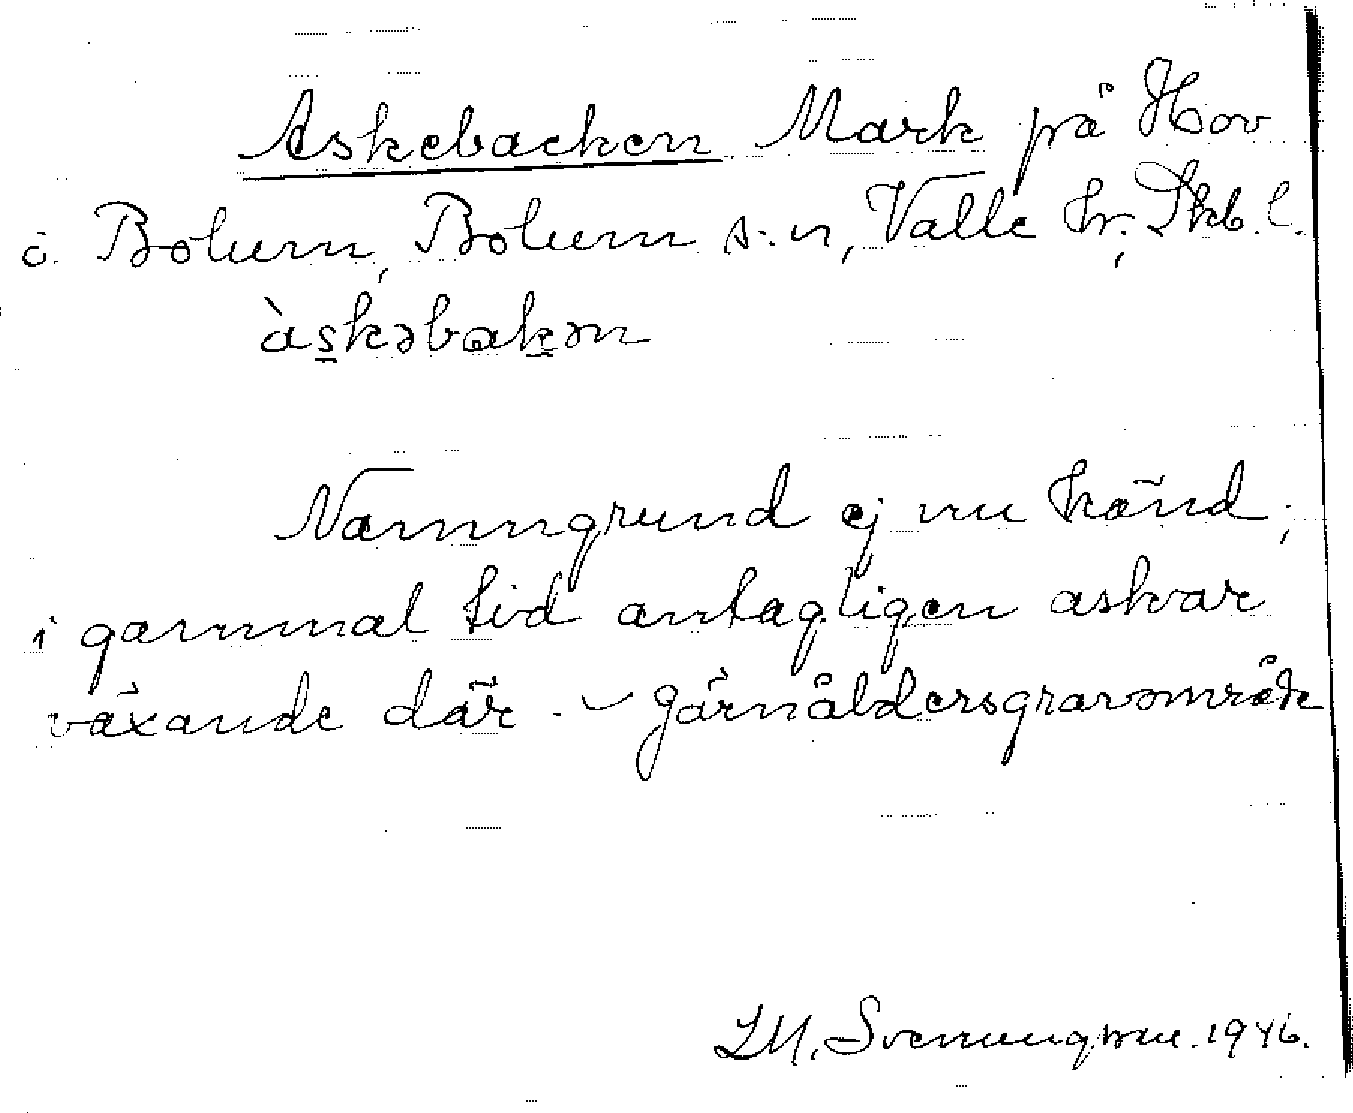 Askebacken Mark på Hov
ö. Bolum, Bolum s:n, Valle hr, Skb. l.
àskəbakən
Namngrund ej nu känd;
i gammal tid antagligen askar
växande där. – Järnåldersgravområde
I.M. Svenungsson. 1946.